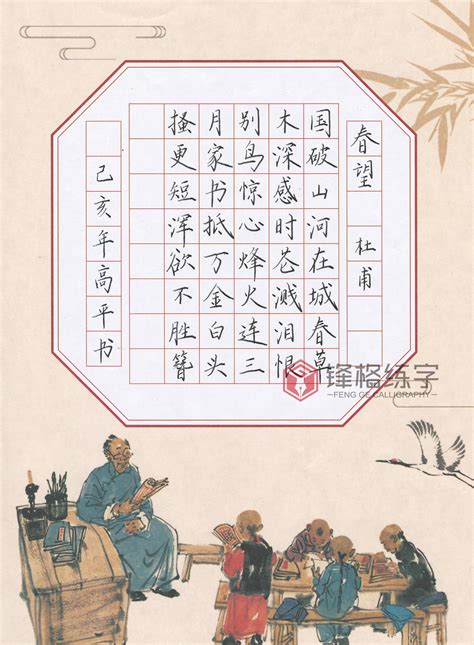 春望 杜甫
国破山河在城春草
木深感时花溅泪恨
别鸟惊心烽火连三
月家书抵万金白头
搔更短浑欲不胜簪
己亥年高平书
锋格练字
—FENG GE CALLIGRAPHY—